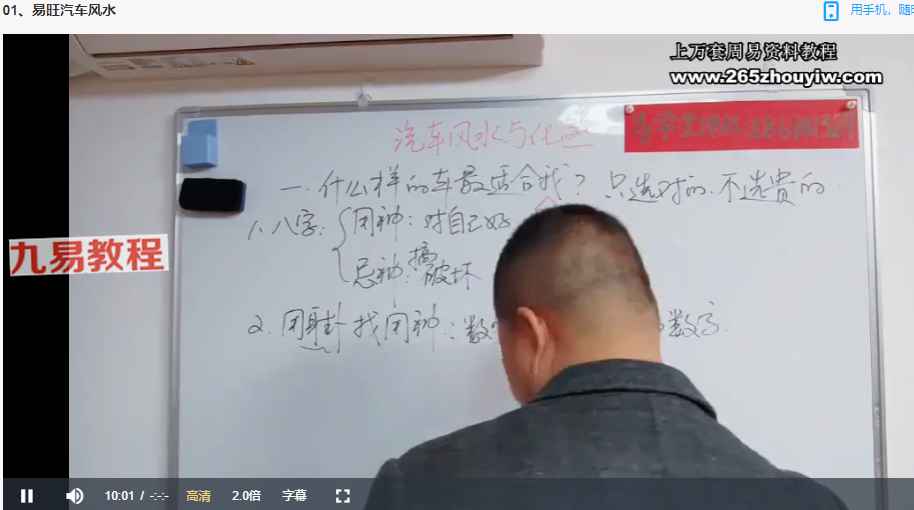 01、易旺汽车风水
用手机，随
上万套周易资料教程
www.265zhouyiw.com
汽车风水与化
一.什么样的车最适合我？只选对的.不选贵的
1.八字：用神：对自己好
忌神：搞破坏
九易教程
2.用卦找用神：数 数字.
10:01 / -:-:-
高清
2.0倍
字幕